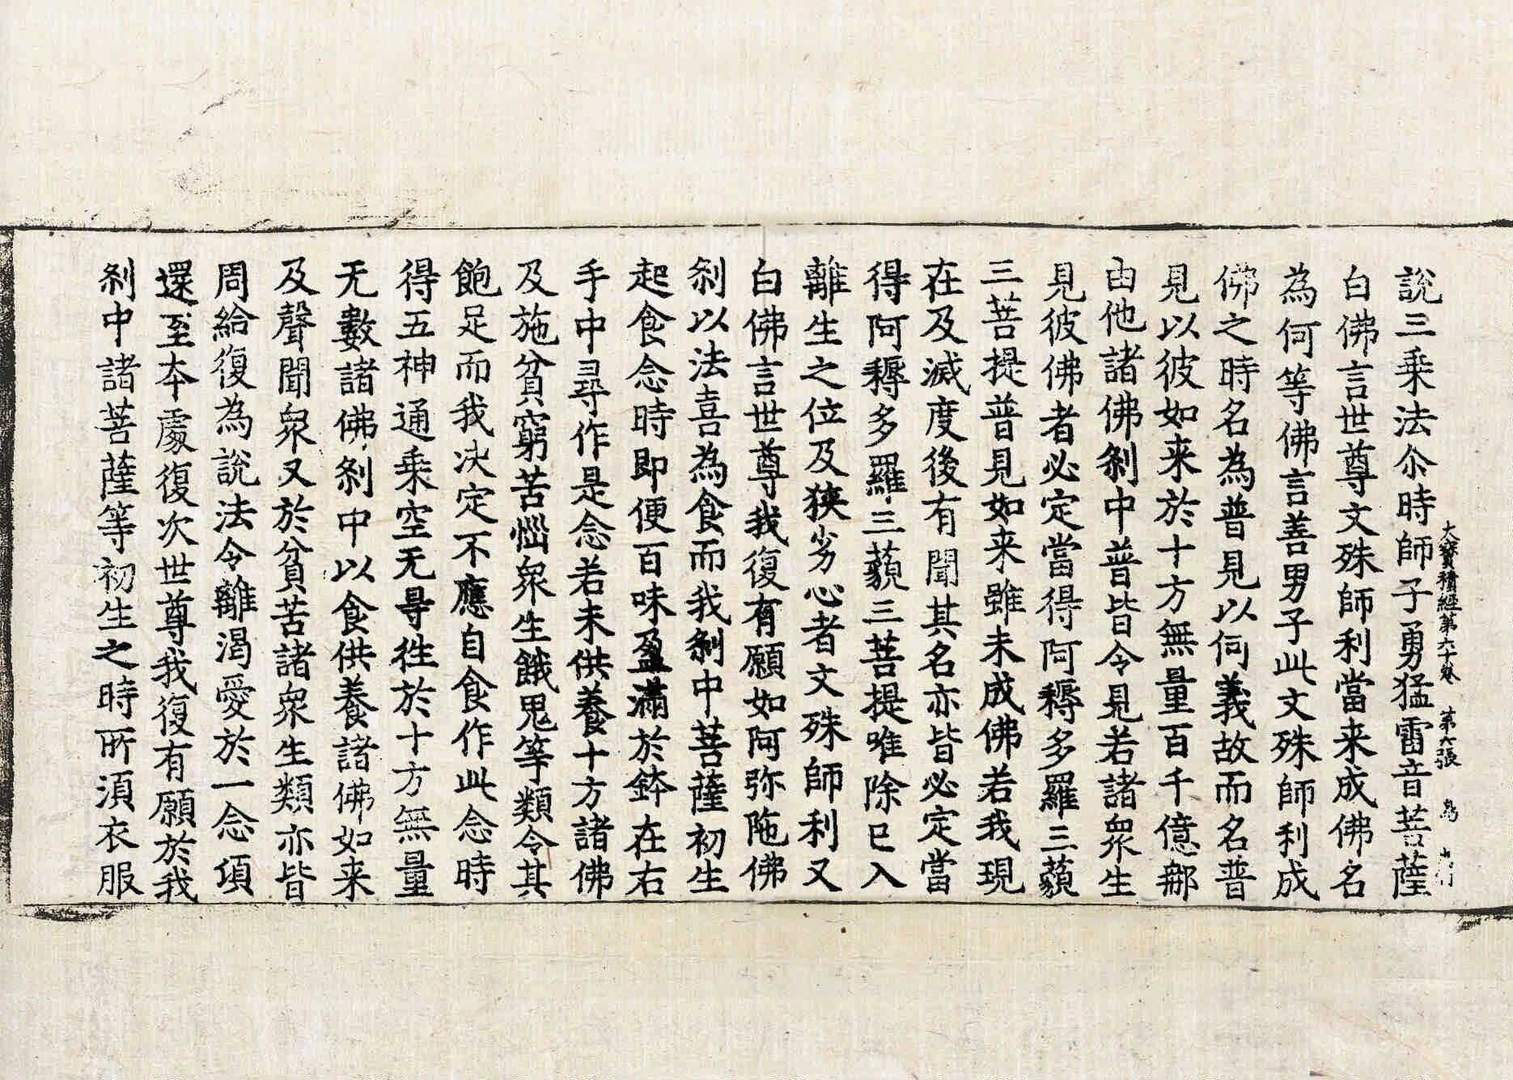 大寶積經第六十卷 第六張 鳥
說三乘法尒時師子勇猛雷音菩薩
白佛言世尊文殊師利當来成佛名
為何等佛言善男子此文殊師利成
佛之時名為普見以何義故而名普
見以彼如来於十方無量百千億那
由他諸佛刹中普皆令見若諸衆生
見彼佛者必定當得阿耨多羅三藐
三菩提普見如来雖未成佛若我現
在及滅度後有聞其名亦皆必定當
得阿耨多羅三藐三菩提唯除已入
離生之位及狹劣心者文殊師利又
白佛言世尊我復有願如阿弥陁佛
刹以法喜為食而我刹中菩薩初生
起食念時即便百味盈滿於鉢在右
手中尋作是念若未供養十方諸佛
及施貧窮苦惱衆生餓鬼等類令其
飽足而我决定不應自食作此念時
得五神通乘空无㝵徃於十方無量
无數諸佛刹中以食供養諸佛如来
及聲聞衆又於貧苦諸衆生類亦皆
周給復為說法令離渴愛於一念頃
還至本處復次世尊我復有願於我
刹中諸菩薩等初生之時所須衣服